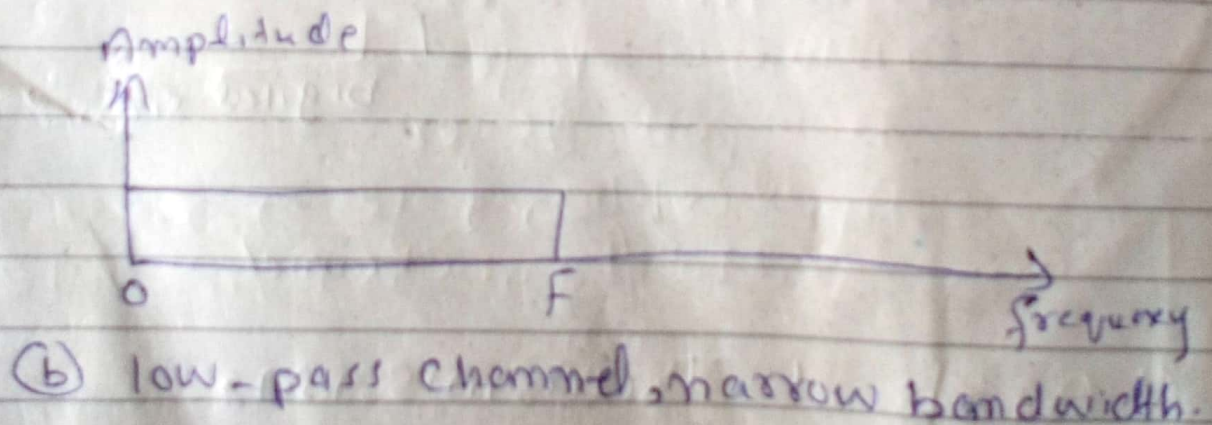 Amplitude
0
F
frequency
(b) low-pass channel, narrow bandwidth.